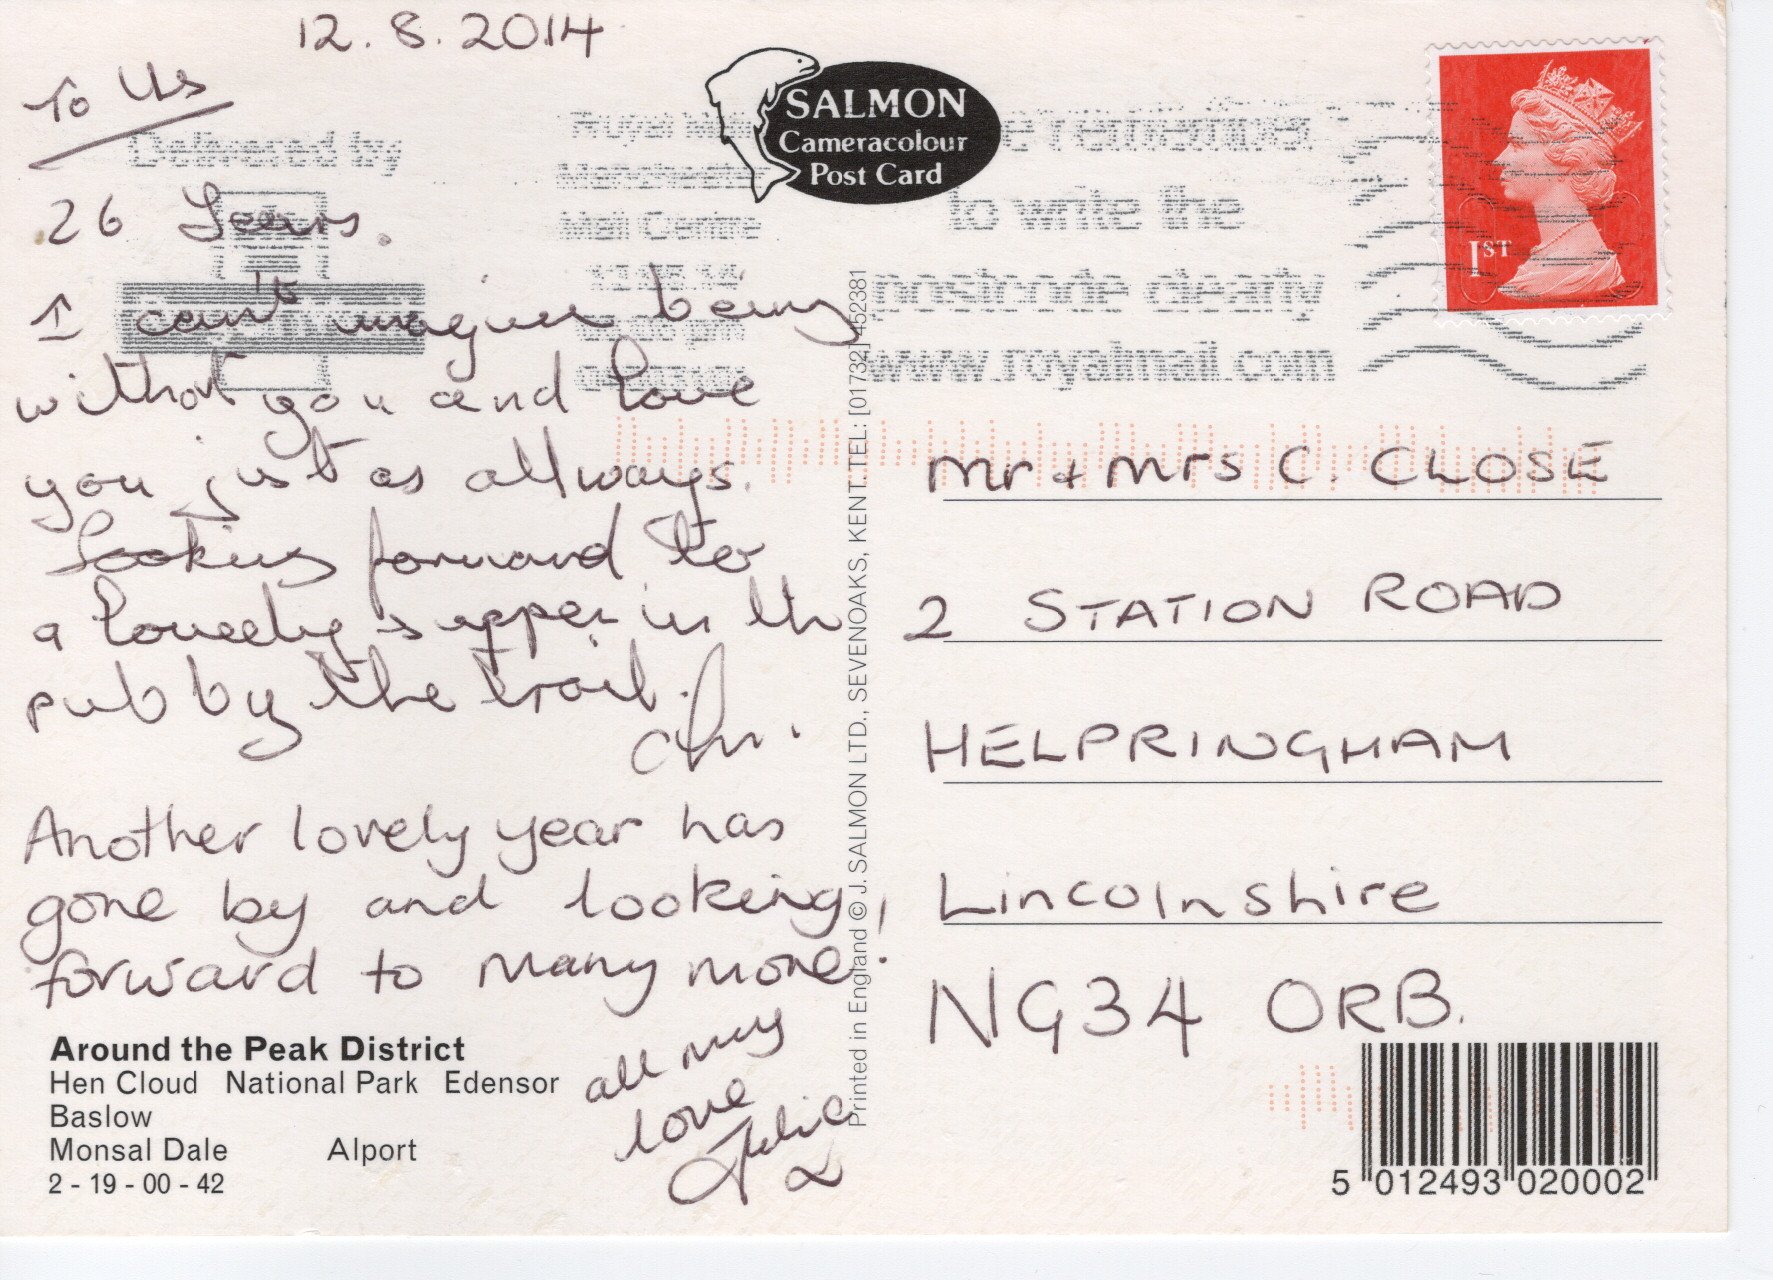 12.8.2014
To Us
26 Years.
I can't imagine being
without you and love
you just as allways.
Looking forward to
a lovely supper in th
pub by the trail.
Another lovely year has
gone by and looking
forward to many more!
all my
love
Julie
x
Around the Peak District
Hen Cloud National Park Edensor
Baslow
Monsal Dale Alport
2 - 19 - 00 - 42
SALMON
Cameracolour
Post Card
Printed in England © J. SALMON LTD., SEVENOAKS, KENT. TEL: [01732] 452381
Delivered by
Royal Mail
Mail Centre
remember
to write the
postcode clearly
www.royalmail.com
1ST
Mr + Mrs C. CLOSE
2 STATION ROAD
HELPRINGHAM
Lincolnshire
NG34 ORB.
5 012493 020002